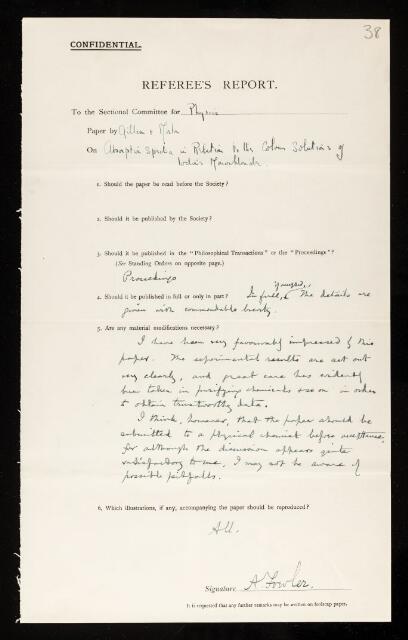 38
CONFIDENTIAL.
REFEREE'S REPORT.
To the Sectional Committee for Physics
Paper by Gillam & Morton
On Absorption Spectra in Relation to the Colour Solutions of
Iodine Monochloride.
1. Should the paper be read before the Society?
2. Should it be published by the Society?
3. Should it be published in the "Philosophical Transactions" or the "Proceedings"?
(See Standing Orders on opposite page.)
Proceedings
4. Should it be published in full or only in part? In full, The details are
given with commendable brevity.
5. Are any material modifications necessary?
I have been very favourably impressed by this
paper. The experimental results are set out
very clearly, and great care has evidently
been taken in purifying chemicals & so on in order
to obtain trustworthy data.
I think, however, that the paper should be
submitted to a physical chemist before acceptance,
for although the discussion appears quite
satisfactory to me, I may not be aware of
possible pitfalls.
6. Which illustrations, if any, accompanying the paper should be reproduced?
All.
Signature A Fowler.
It is requested that any further remarks may be written on foolscap paper.